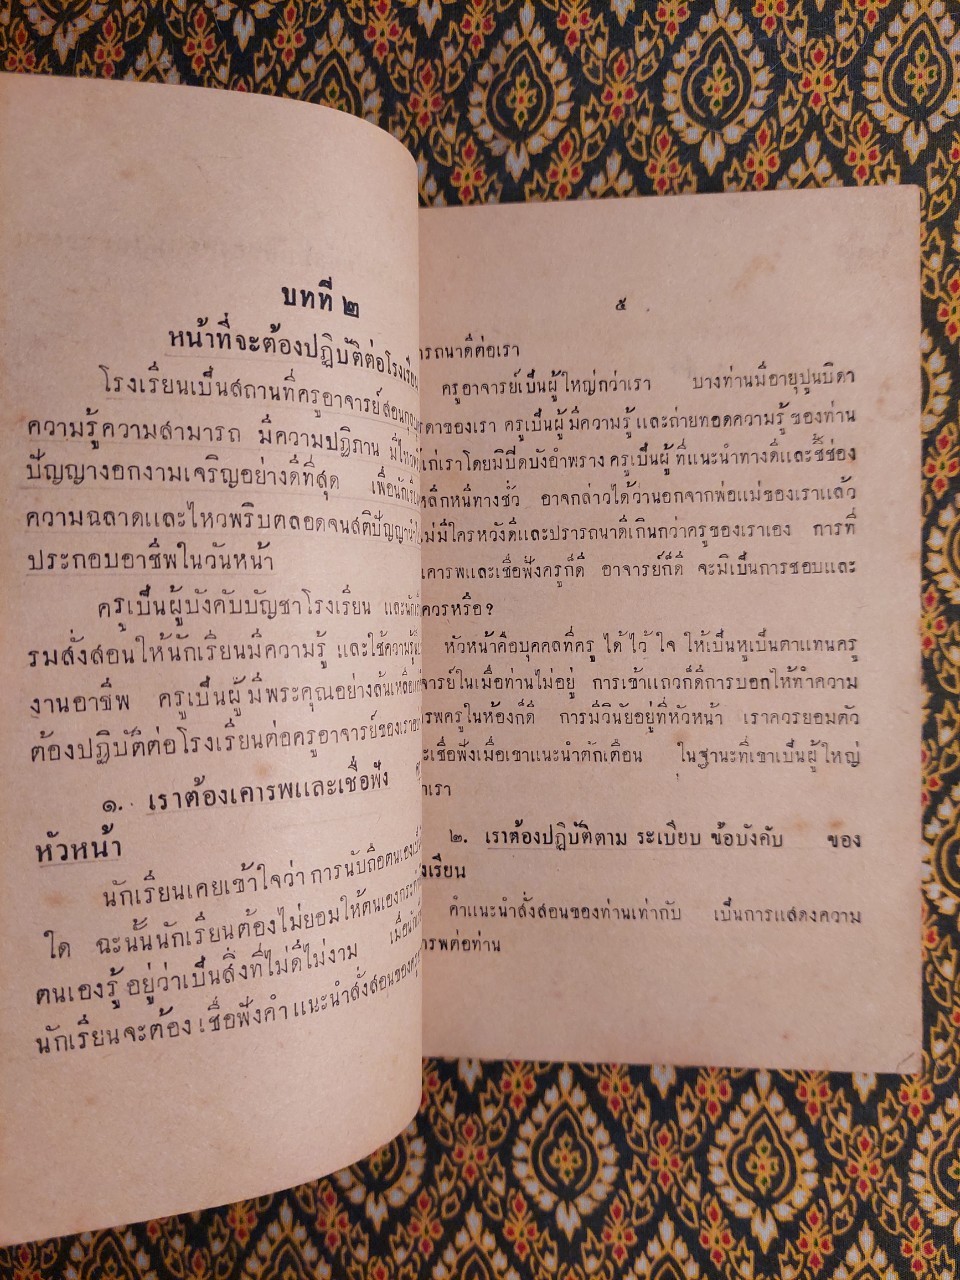 บทที่ ๒
หน้าที่จะต้องปฏิบัติต่อโรงเรียน
โรงเรียนเป็นสถานที่ครูอาจารย์สอน
ความรู้ความสามารถ มีความปฏิภาน มีไหวพริบ
ปัญญางอกงามเจริญอย่างดีที่สุด เพื่อนักเรียน
ความฉลาดและไหวพริบตลอดจนสติปัญญา
ประกอบอาชีพในวันหน้า
ครูเป็นผู้บังคับบัญชาโรงเรียน และนัก
รมสั่งสอนให้นักเรียนมีความรู้ และใช้ความรู้
งานอาชีพ ครูเป็นผู้มีพระคุณอย่างล้นเหลือ
ต้องปฏิบัติต่อโรงเรียนต่อครูอาจารย์ของเรา
๑. เราต้องเคารพและเชื่อฟัง
หัวหน้า
นักเรียนเคยเข้าใจว่า การนับถือตนเอง
ใด ฉะนั้นนักเรียนต้องไม่ยอมให้ตนเอง
ตนเองรู้ อยู่ว่าเป็นสิ่งที่ไม่ดีไม่งาม เมื่อ
นักเรียนจะต้อง เชื่อฟังคำ แนะนำสั่งสอนของ
๕
ารถนาดีต่อเรา
ครูอาจารย์เป็นผู้ใหญ่กว่าเรา บางท่านมีอายุปูนบิดา
รดาของเรา ครูเป็นผู้มีความรู้ และถ่ายทอดความรู้ ของท่าน
แก่เราโดยมิปิดบังอำพราง ครูเป็นผู้ ที่แนะนำทางดีและชี้ช่อง
หลีกหนีทางชั่ว อาจกล่าวได้ว่านอกจากพ่อแม่ของเราแล้ว
ไม่มีใครหวังดีและปรารถนาดีเกินกว่าครูของเราเอง การที่
เคารพและเชื่อฟังครูก็ดี อาจารย์ก็ดี จะมิเป็นการชอบและ
ควรหรือ?
หัวหน้าคือบุคคลที่ครู ได้ ไว้ ใจ ให้เป็นหูเป็นตาแทนครู
จารย์ในเมื่อท่านไม่อยู่ การเข้าแถวก็ดีการบอกให้ทำความ
รพครูในห้องก็ดี การมีวินัยอยู่ที่หัวหน้า เราควรยอมตัว
ะเชื่อฟังเมื่อเขาแนะนำตักเตือน ในฐานะที่เขาเป็นผู้ใหญ่
่าเรา
๒. เราต้องปฏิบัติตาม ระเบียบ ข้อบังคับ ของ
งเรียน
คำแนะนำสั่งสอนของท่านเท่ากับ เป็นการแสดงความ
ารพต่อท่าน